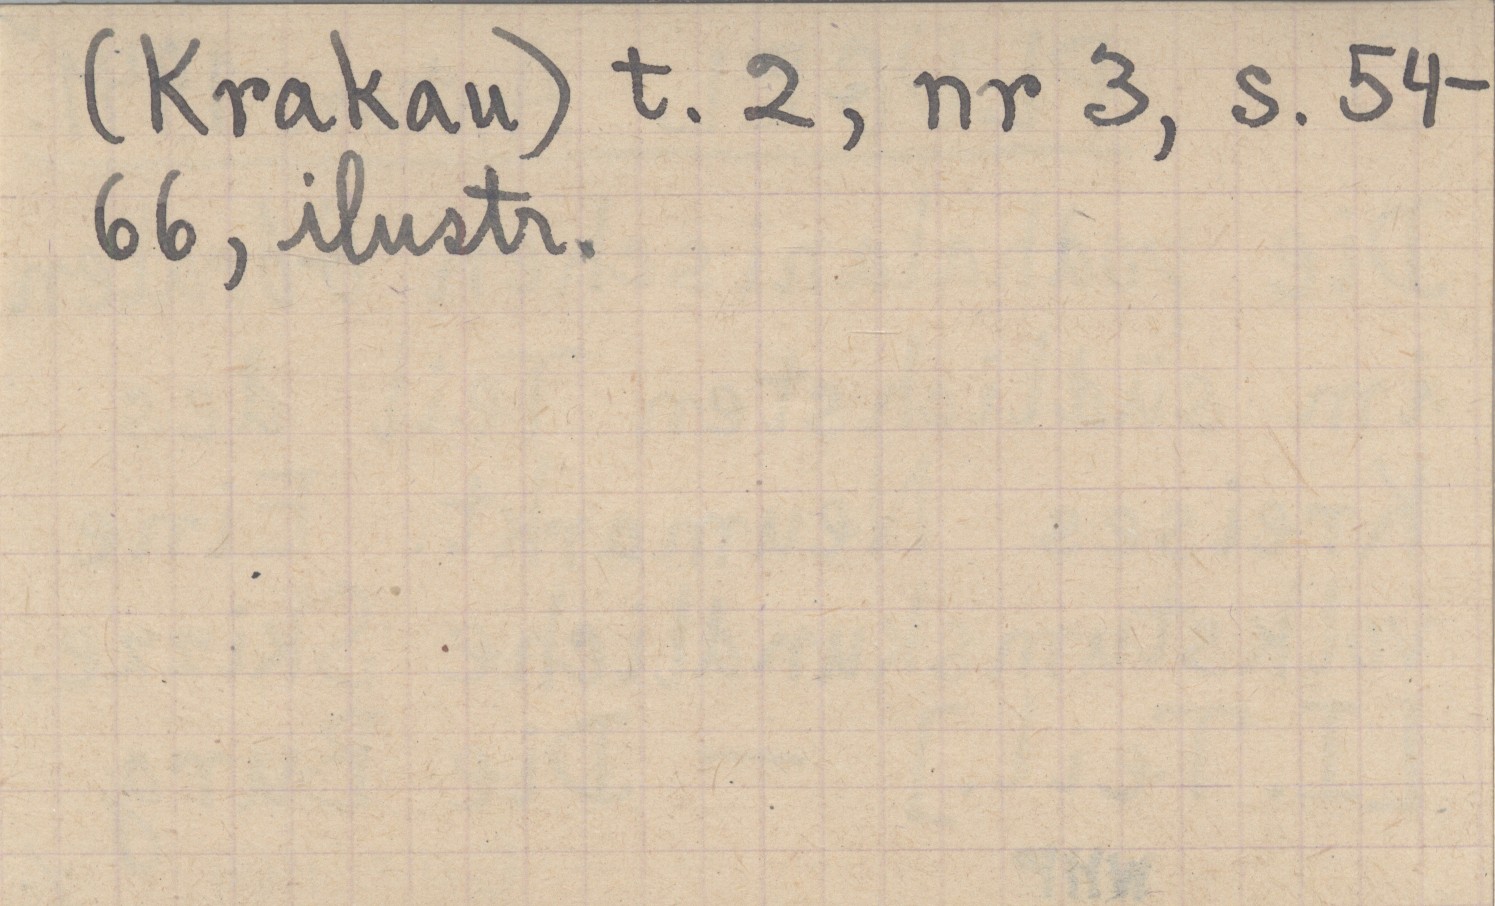 (Krakau) t. 2, nr 3, s. 54-
66, ilustr.